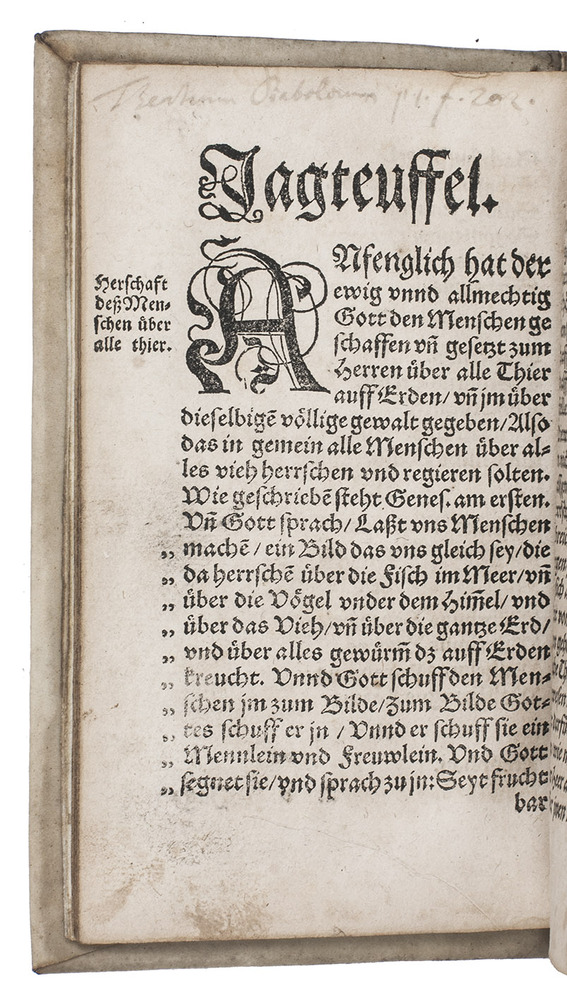 Theatrum Diabolorum
Jagteuffel.
Herschaft
deß Men-
schen über
alle thier.
ANfenglich hat der
ewig vnnd allmechtig
Gott den Menschen ge
schaffen vñ gesetzt zum
Herren über alle Thier
auff Erden/ vñ jm über
dieselbigẽ völlige gewalt gegeben/ Also
das in gemein alle Menschen über al-
les vieh herrschen vnd regieren solten.
Wie geschriebẽ steht Genes. am ersten.
Vñ Gott sprach/ Laßt vns Menschen
„ machẽ / ein Bild das vns gleich sey/ die
„ da herrschẽ über die Fisch im Meer/ vñ
„ über die Vögel vnder dem Him̃el/ vnd
„ über das Vieh/ vñ über die gantze Erd/
„ vnd über alles gewürm̃ dz auff Erden
„ kreucht. Vnnd Gott schuff den Men-
„ schen jm zum Bilde/ Zum Bilde Got-
„ tes schuff er jn / Vnnd er schuff sie ein
„ Mennlein vnd Freuwlein. Vnd Gott
„ segnet sie/ vnd sprach zu jn: Seyt frucht
bar